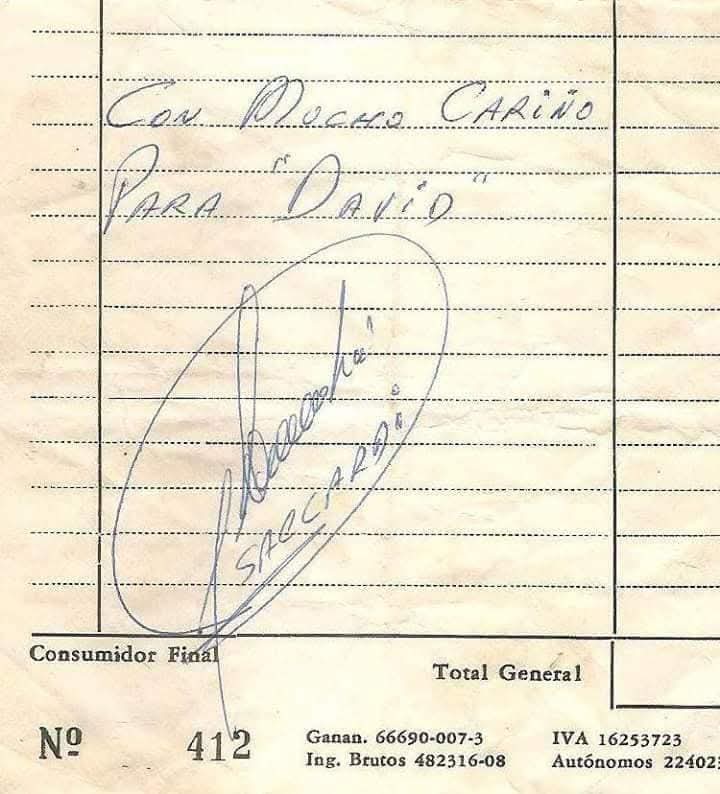 Con Mucho Cariño
Para "David"
SACCARDI
Consumidor Final
Total General
Nº 412
Ganan. 66690-007-3 IVA 16253723
Ing. Brutos 482316-08 Autónomos 224023